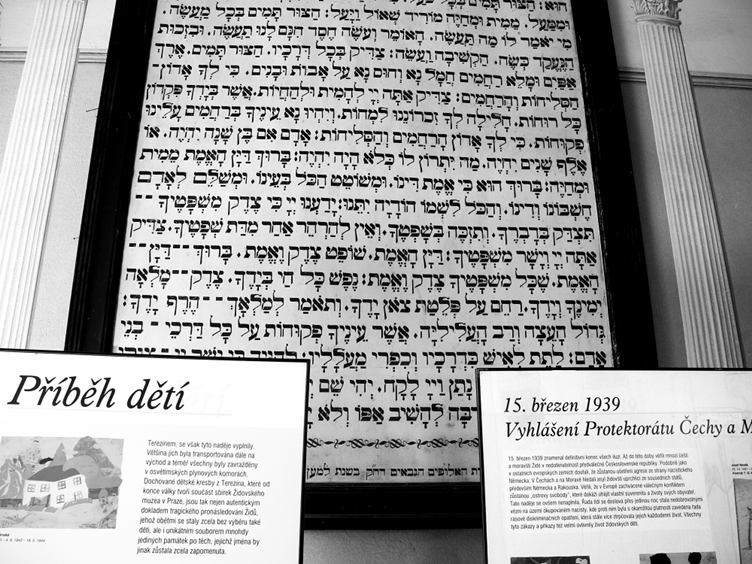 הוא: הצור תמים בכל
וממעל. ממית ומחיה מוריד שאול ויעל: הצור תמים בכל מעשה.
מי יאמר לו מה תעשה. האומר ועושה חסד חנם לנו תעשה. ובזכות
הנעקד כשה. הקשיבה ועשה: צדיק בכל דרכיו. הצור תמים. ארך
אפים ומלא רחמים חמל נא וחוס נא על אבות ובנים. כי לך אדון
הסליחות והרחמים: צדיק אתה יי להמית ולהחיות. אשר בידך פקדון
כל רוחות. חלילה לך זכרוננו למחות. ויהיו נא עיניך ברחמים עלינו
פקוחות. כי לך אדון הרחמים והסליחות: אדם אם בן שנה יהיה. או
אלף שנים יחיה. מה יתרון לו כלא היה יהיה: ברוך דין האמת ממית
ומחיה: ברוך הוא כי אמת דינו. ומשוטט הכל בעינו. ומשלם לאדם
חשבונו ודינו. והכל לשמו הודיה יתנו: ידענו יי כי צדק משפטיך
תצדק בדברך. ותזכה בשפטך. ואין להרהר אחר מדת שפטיך. צדיק
אתה יי וישר משפטיך: דין האמת. שופט צדק ואמת. ברוך דין
האמת. שכל משפטיך צדק ואמת: נפש כל חי בידך. צדק מלאה
ימינך וידך. רחם על פלטת צאן ידך. ותאמר למלאך הרף ידך:
גדול העצה ורב העליליה. אשר עיניך פקוחות על כל דרכי בני
אדם: לתת לאיש כדרכיו וכפרי מעלליו:
נתן ויי לקח. יהי שם
בה להשיב אפו ולא
Příběh dětí
Terezínem, se však tyto naděje vyplnily.
Většina jich byla transportována dále na
východ a téměř všechny byly zavražděny
v osvětimských plynových komorách.
Dochované dětské kresby z Terezína, které od
konce války tvoří součást sbírek Židovského
muzea v Praze, jsou tak nejen autentickým
dokladem tragického pronásledování Židů,
jehož obětmi se staly zcela bez výběru také
děti, ale i unikátním souborem mnohdy
jediných památek po těch, jejichž jména by
jinak zůstala zcela zapomenuta.
15. březen 1939
Vyhlášení Protektorátu Čechy a M
15. březen 1939 znamenal definitivní konec všech iluzí. Až do této doby věřili mnozí čeští
a moravští Židé v nedotknutelnost předválečné Československé republiky. Podobně jako
v ostatních evropských zemích doufali, že zůstanou ušetřeni agrese ze strany nacistického
Německa. V Čechách a na Moravě hledali azyl židovští uprchlíci ze sousedních států,
především Německa a Rakouska. Věřili, že v Evropě zachvácené válečným konfliktem
zůstanou „ostrovy svobody", které dokáží uhájit vlastní suverenitu a životy svých obyvatel.
Tato naděje se ovšem nenaplnila. Řada lidí se doslova přes jedinou noc stala nedobrovolnými
vězni na území okupovaném nacisty, kde proti nim byla s okamžitou platností zavedena řada
rasově diskriminačních opatření, která stále více ztrpčovala jejich každodenní život. Všechny
tyto zákazy a příkazy též velmi ovlivnily život židovských dětí.